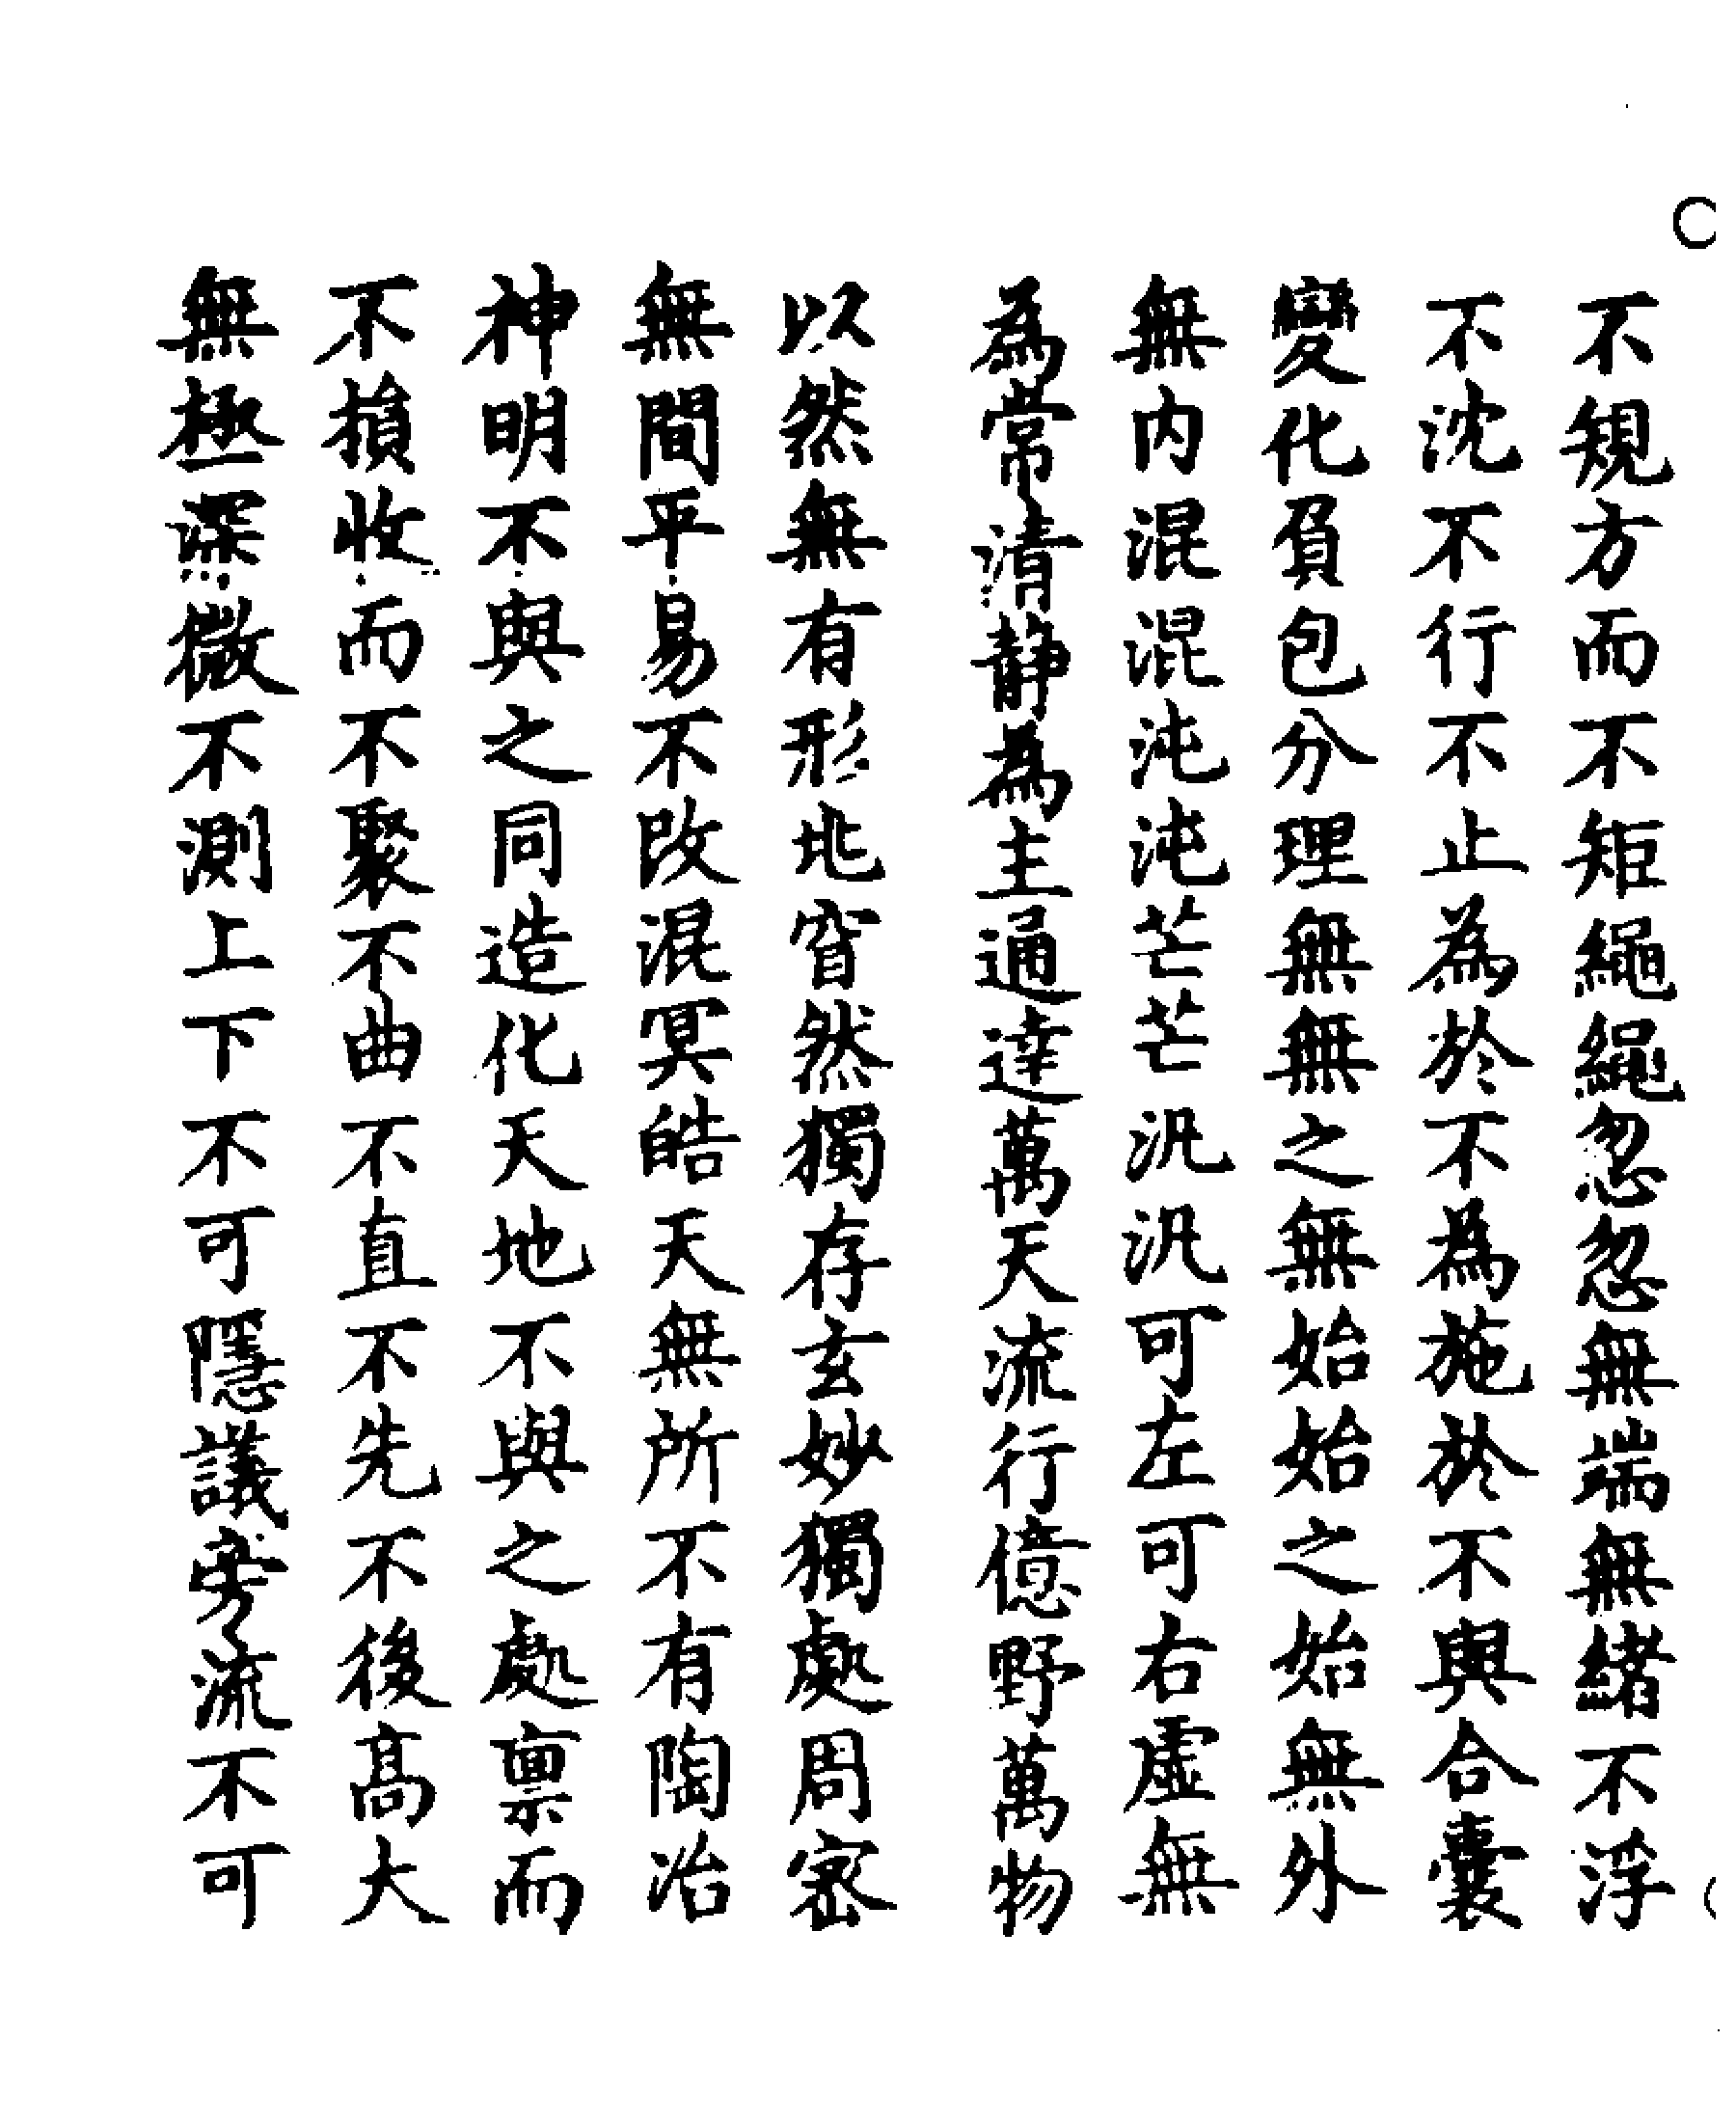 不規方而不矩繩繩忽忽無端無緒不浮
不沈不行不止為於不為施於不與合囊
變化負包分理無無之無始始之始無外
無内混混沌沌芒芒汎汎可左可右虛無
為常清静為主通達萬天流行億野萬物
以然無有形兆窅然獨存玄妙獨處周密
無間平易不改混冥皓天無所不有陶冶
神明不與之同造化天地不與之處禀而
不損收而不聚不曲不直不先不後高大
無極深微不測上下不可隱議旁流不可